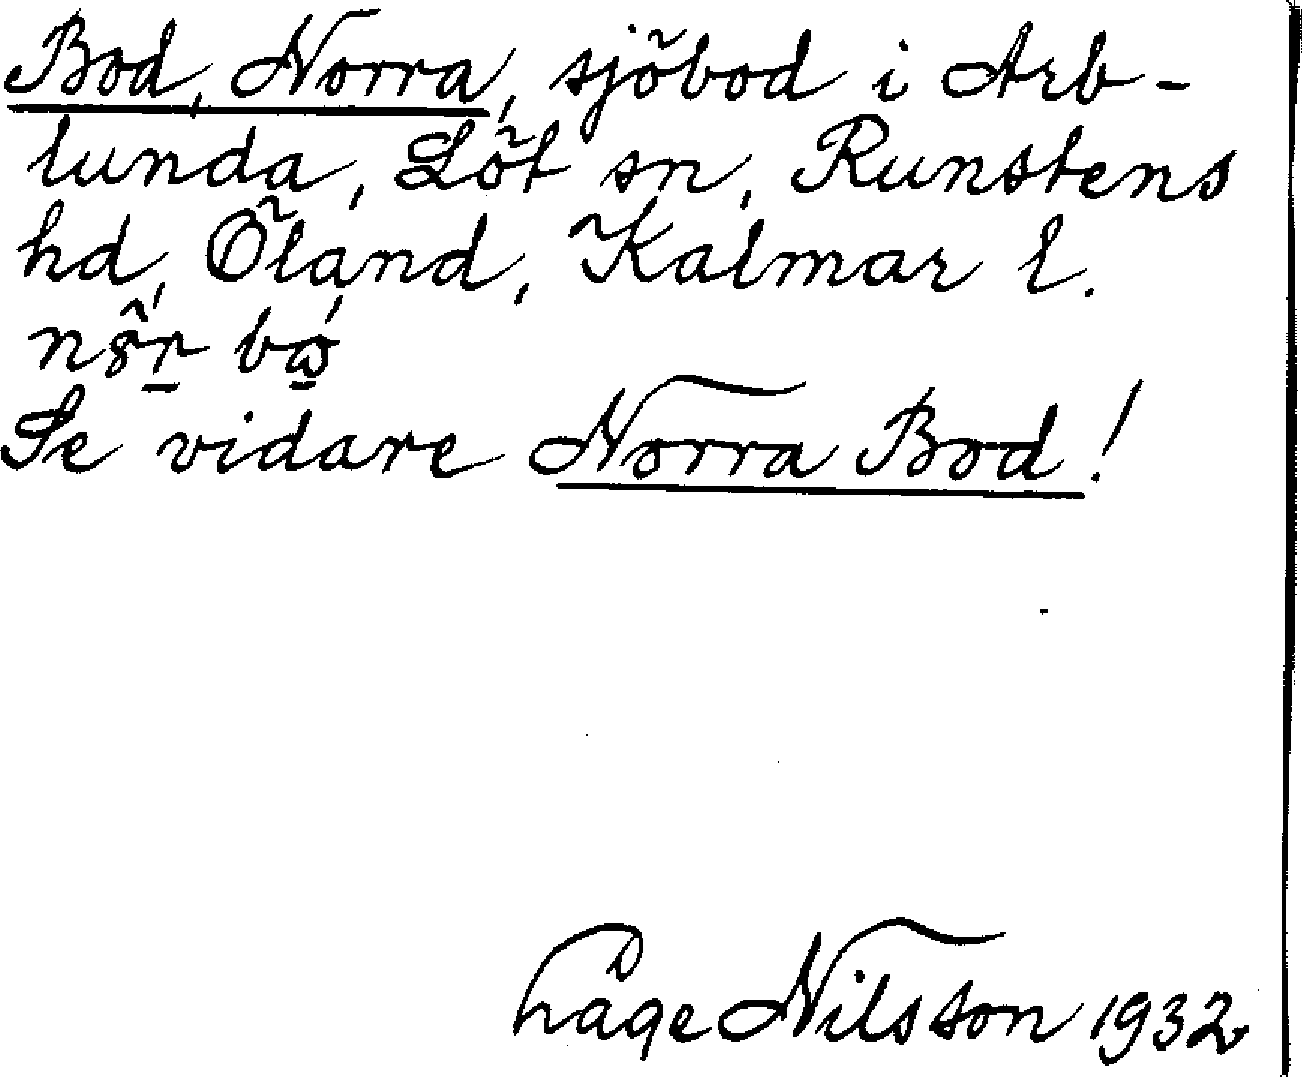 Bod, Norra, sjöbod i Arb-
lunda, Löt sn, Runstens
hd, Öland, Kalmar l.
Se vidare Norra Bod!
Låge Nilsson 1932